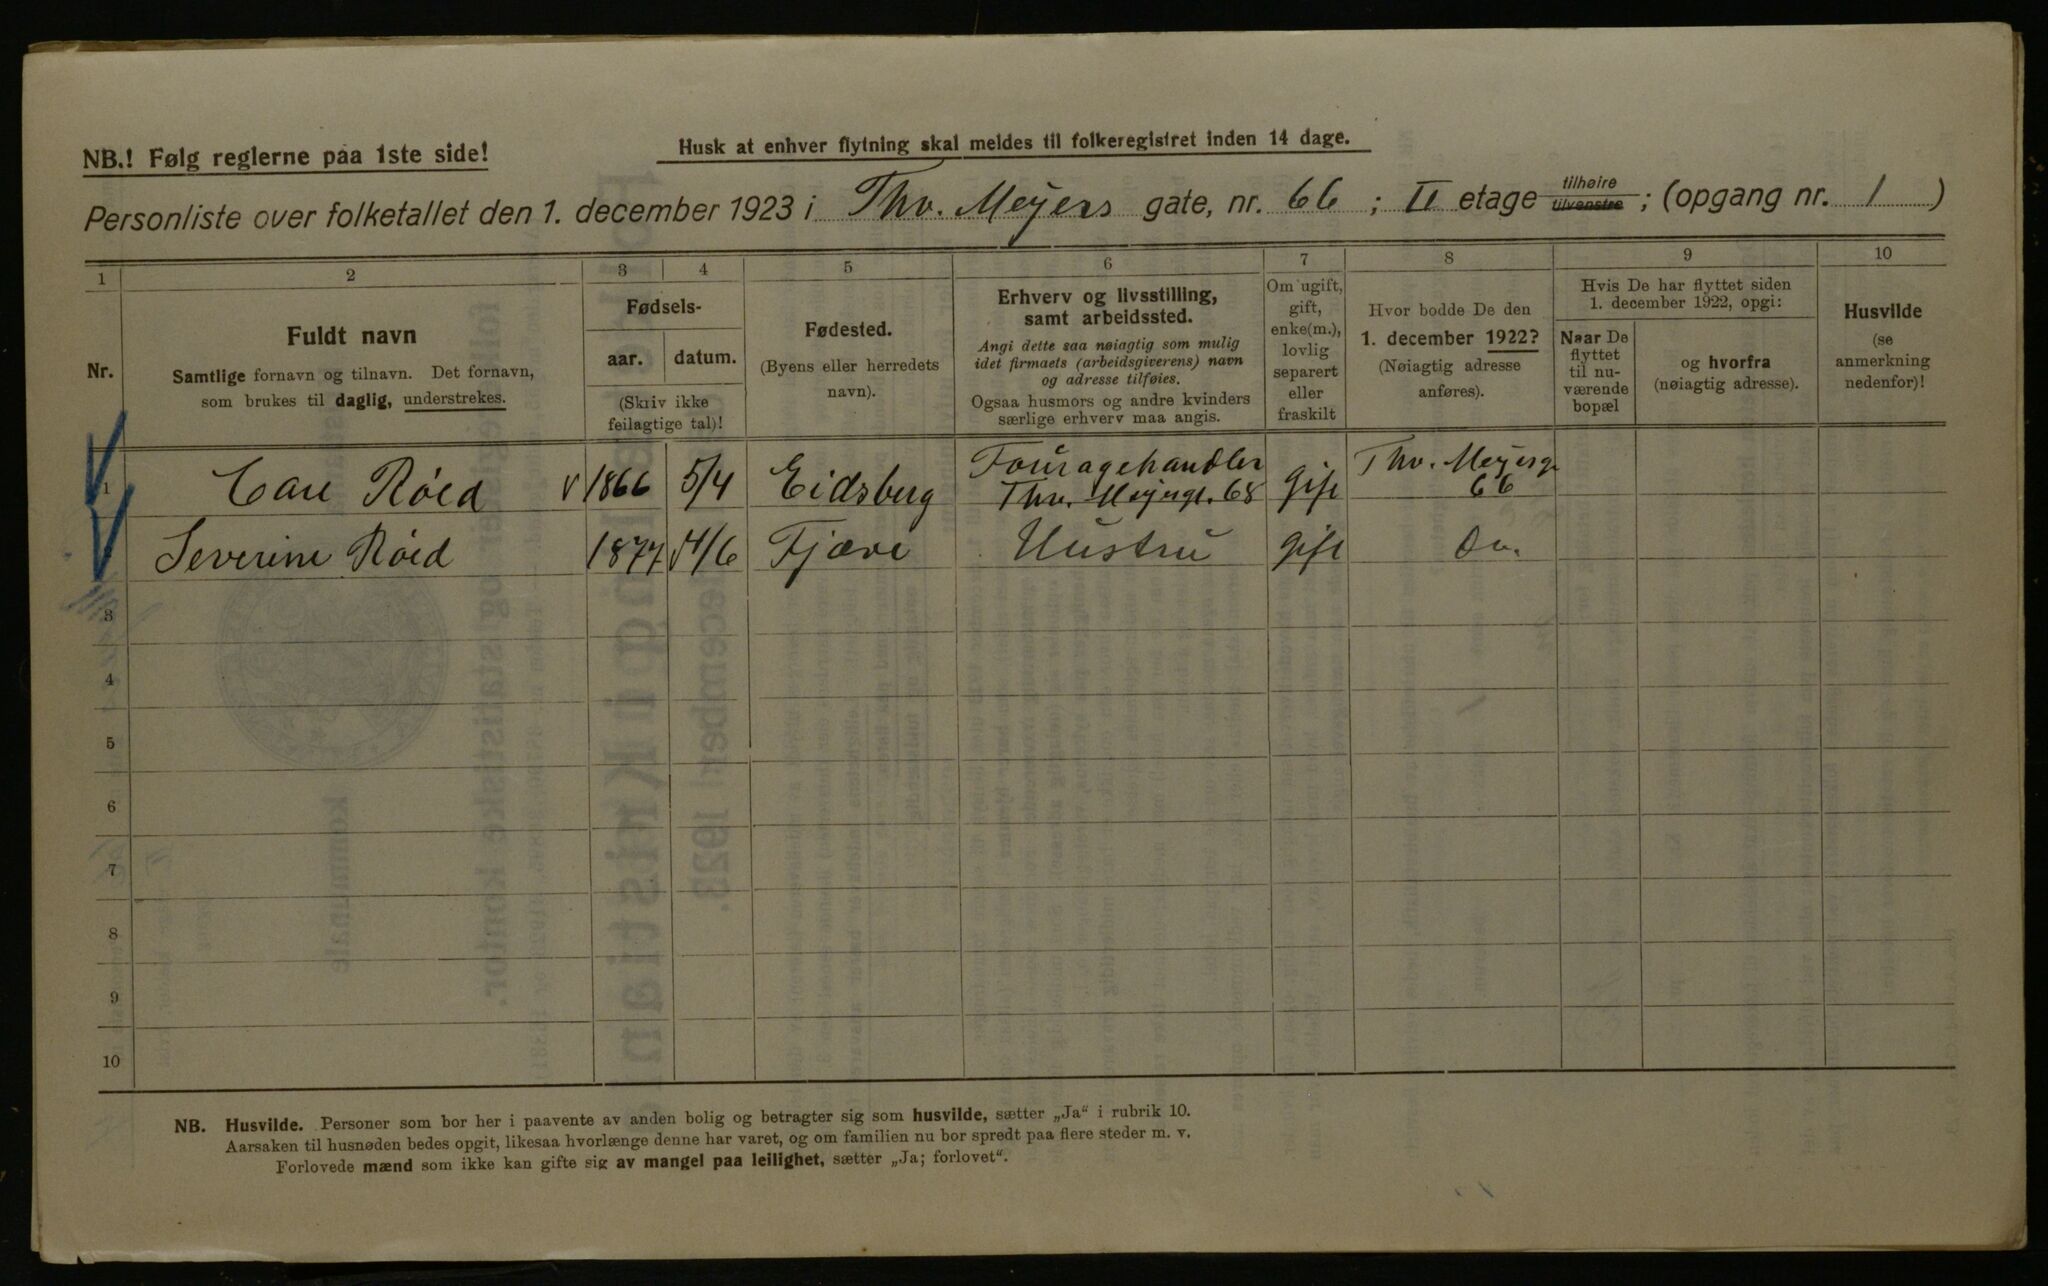 NB.! Følg reglerne paa 1ste side!
Husk at enhver flytning skal meldes til folkeregistret inden 14 dage.
Personliste over folketallet den 1. december 1923 i Thv. Meyers gate, nr. 66 ; II etage tilhøire tilvenstre ; (opgang nr. 1 )
1 2 3 4 5 6 7 8 9 10
Nr.
Fuldt navn
Samtlige fornavn og tilnavn. Det fornavn,
som brukes til daglig, understrekes.
Fødsels-
aar. datum.
(Skriv ikke
feilagtige tal)!
Fødested.
(Byens eller herredets
navn).
Erhverv og livsstilling,
samt arbeidssted.
Angi dette saa nøiagtig som mulig
idet firmaets (arbeidsgiverens) navn
og adresse tilføies.
Ogsaa husmors og andre kvinders
særlige erhverv maa angis.
Om ugift,
gift,
enke(m.),
lovlig
separert
eller
fraskilt
Hvor bodde De den
1. december 1922?
(Nøiagtig adresse
anføres).
Hvis De har flyttet siden
1. december 1922, opgi:
Naar De
flyttet
til nu-
værende
bopæl
og hvorfra
(nøiagtig adresse).
Husvilde
(se
anmerkning
nedenfor)!
1 Carl Røed v 1866 5/4 Eidsberg Fouragehandler Thv. Meyersgt. 68 gift Thv. Meyersg. 66
Severine Røed 1877 14/6 Fjære Hustru gift Do.
3
4
5
6
7
8
9
10
NB. Husvilde. Personer som bor her i paavente av anden bolig og betragter sig som husvilde, sætter „Ja“ i rubrik 10.
Aarsaken til husnøden bedes opgit, likesaa hvorlænge denne har varet, og om familien nu bor spredt paa flere steder m. v.
Forlovede mænd som ikke kan gifte sig av mangel paa leilighet, sætter „Ja; forlovet“.